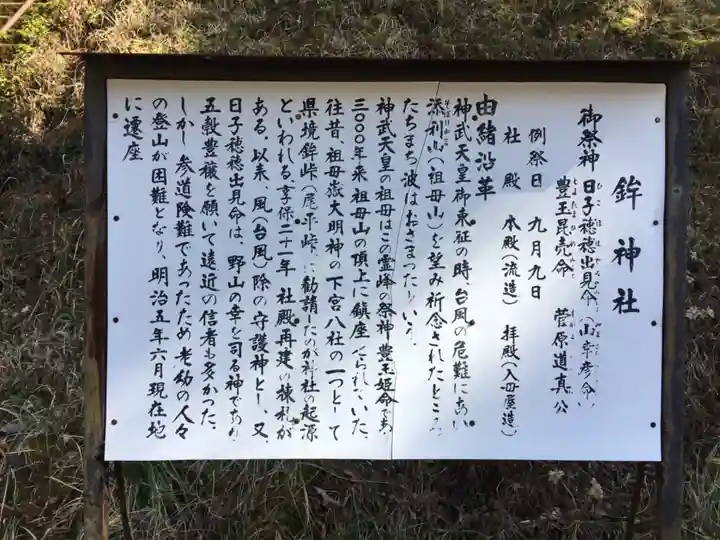 鉾神社
御祭神 日子穂穂出見命(山幸彦命)
豊玉毘売命 菅原道真公
例祭日 九月九日
社殿 本殿(流造) 拝殿(入母屋造)
由緒沿革
神武天皇御東征の時、台風の危難にあい
添利山(祖母山)を望み祈念されたところ
たちまち波はおさまったという。
神武天皇の祖母はこの霊峰の祭神豊玉姫命であり
三〇〇〇年来祖母山の頂上に鎮座せられていた。
往昔、祖母嶽大明神の下宮八社の一つとして
県境鉾峠(尾平峠)に勧請したのが神社の起源
といわれる。享保二十一年 社殿再建の棟札が
ある。以来、風(台風)除の守護神とし、又
日子穂穂出見命は、野山の幸を司る神であり
五穀豊穣を願いて遠近の信者も多かった。
しかし参道険難であったため老幼の人々
の登山が困難となり、明治五年六月現在地
に遷座